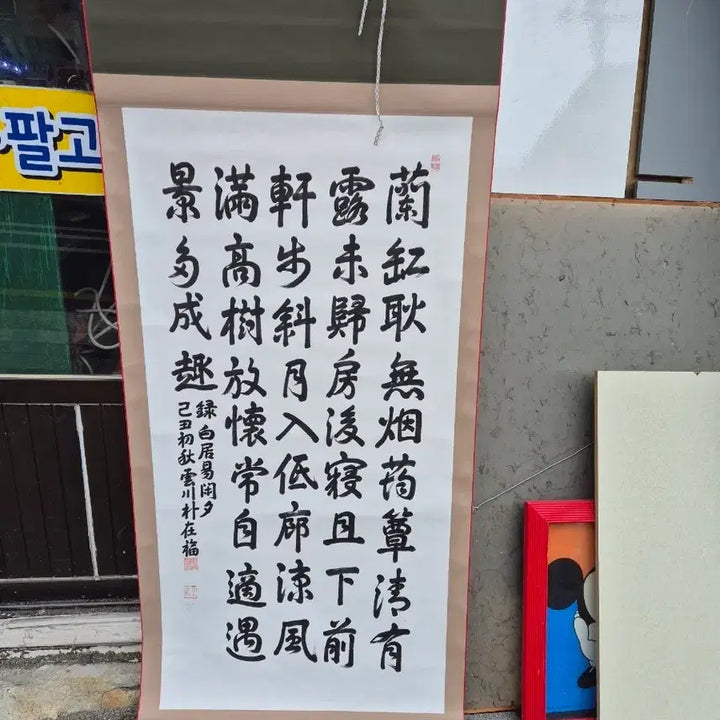 팔고
蘭缸耿無烟筠簟清有
露未歸房後寢且下前
軒步斜月入低廊凉風
滿高樹放懷常自適遇
景多成趣
録白居易閑夕
己丑初秋雲川朴在福